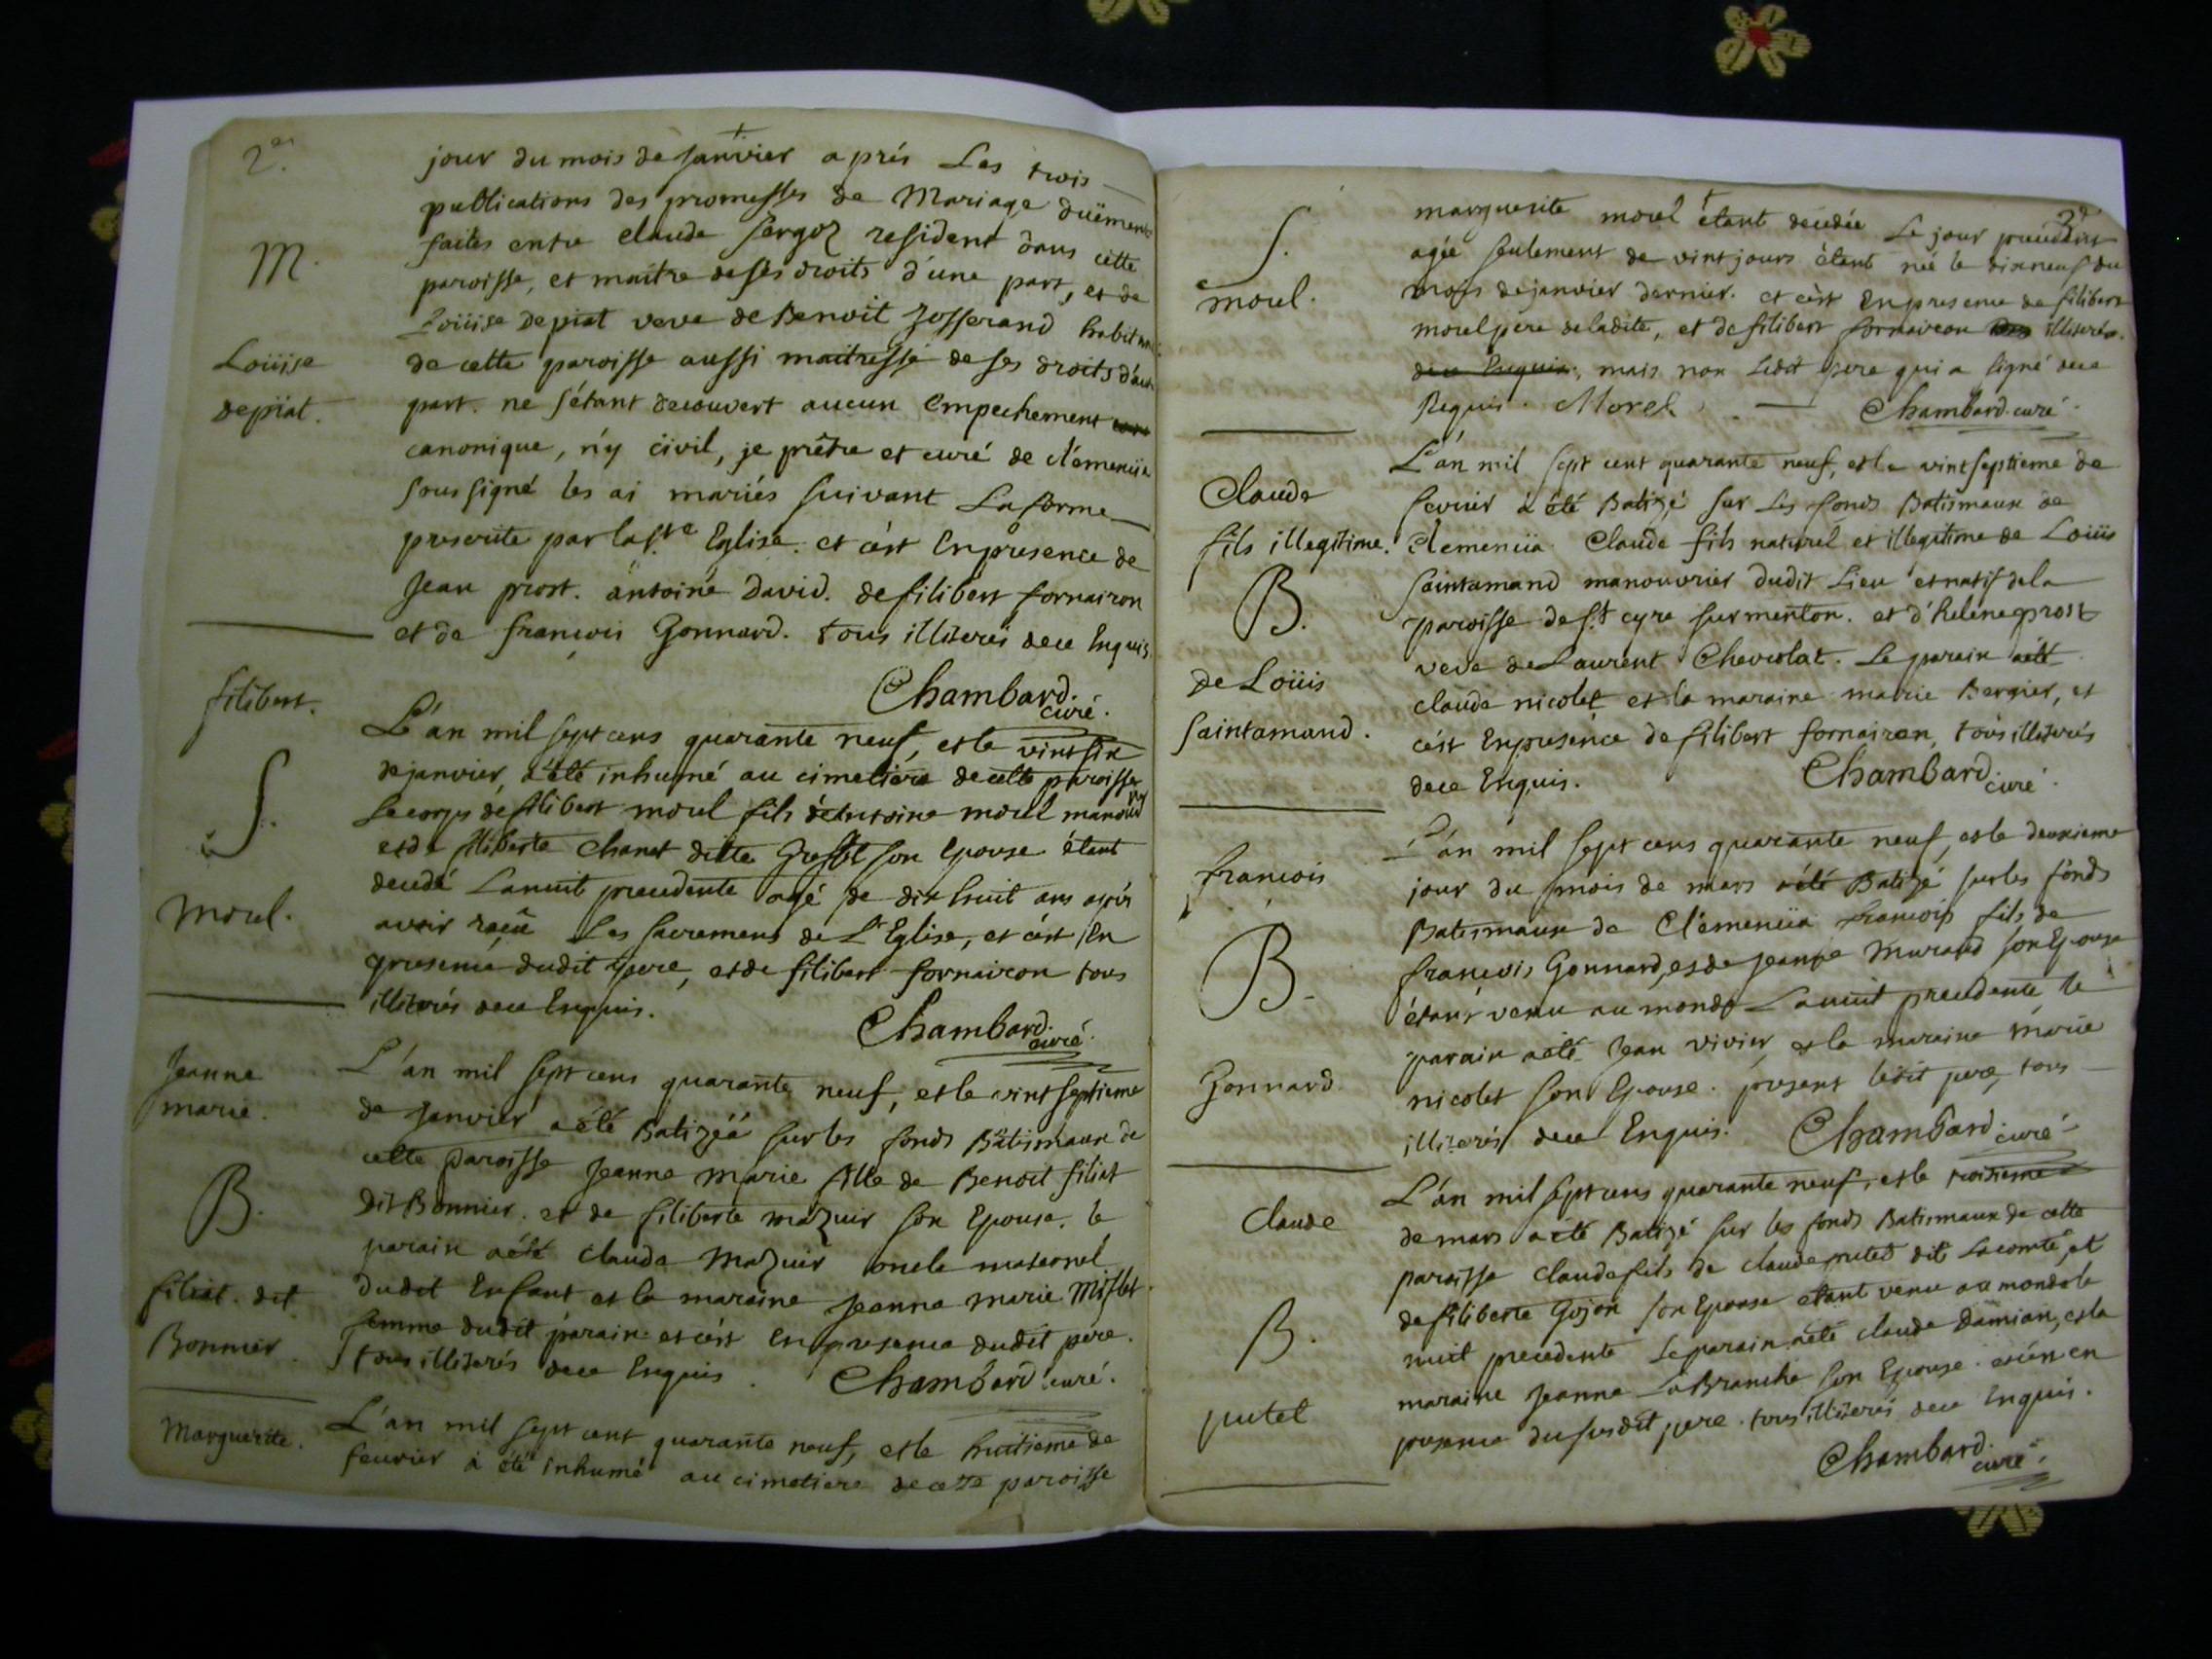 2e.
jour du mois de Janvier aprés Les trois
publications des promesses de Mariage duëment
faites entre claude Sergoz resident dans cette
M.
paroisse, et maitre de ses droits d'une part, et de
Loüise depiat veve de Benoit Josserand habitan
Loüise
de cette paroisse aussi maitresse de ses droits d'au
depiat.
part. ne s'étant decouvert aucun Empechement
canonique, n'y civil, je prêtre et curé de clémenciia
sous signé les ai mariés suivant La forme
prescrite par la Ste Eglise. et c'est En presence de
Jean prost. antoine David. de filibert fornairon
et de françois Gonnard. tous illiterés de ce Enquis.
Chambard. curé.
filibert.
L'an mil sept cens quarante neuf, et le vint six
de janvier, a été inhumé au cimetiere de cette paroisse
S.
Le corps de filibert morel fils de Antoine morel manouv
et de filiberte Chanet ditte son Epouse étant
decedé La nuit precedente agé de dix huit ans aprés
morel.
avoir raçû Les sacremens de L'Eglise, et c'est En
presence dudit pere, et de filibert fornairon tous
illiterés de ce Enquis.
Chambard. curé.
Jeanne
L'an mil sept cens quarante neuf, et le vint septieme
marie.
de Janvier a été Batizéé sur les fonds Batismaux de
cette Paroisse Jeanne Marie fille de Benoit filiat
B.
dit Bonnier. et de filiberte mazuir son Epouse. le
parain a été Claude Mazuir oncle maternel
filiat. dit
dudit Enfant et la maraine Jeanne Marie
Bonnier.
femme dudit parain et c'est En presence dudit pére.
tous illiterés de ce Enquis. Chambard curé.
Marguerite.
L'an mil sept cent quarante neuf, et le huitieme de
feuvrier a été inhumé au cimetiere de cette paroisse
3e
marguerite morel étant decedée Le jour precedent
S.
agée seulement de vint jours étant née le dix neuf du
morel.
mois de janvier dernier. et c'est En presence de filibert
morel père de ladite, et de filibert fornairon illiterés.
de ce Enquis, mais non Ledit pere qui a signé de ce
Requis. Morel Chambard. curé.
L'an mil sept cent quarante neuf, et le vint septieme de
Claude
fevrier a été Batizé sur Les fonds Batismaux de
fils illegitime.
Clemenciia Claude fils naturel et illegitime de Loüis
B.
Saintamand manouvrier dudit Lieu et natif de la
paroisse de St cyre sur menton. et d'heléne prost
de Loüis
veve de Laurent Chevrolat. Le parain a été
Saintamand.
claude nicolet et la maraine marie Bergier, et
c'est En presence de filibert fornairon, tous illiterés
de ce Enquis. Chambard curé.
françois
L'an mil sept cens quarante neuf, et le deuxieme
jour du mois de mars a été Batizé sur les fonds
B.
Batismaux de Clémenciia françois fils de
françois Gonnard, et de Jeanne Murand son Epouse
étant venu au monde La nuit precedente le
Gonnard
parain a été Jean vivier et la maraine Marie
nicolet son Epouse. present ledit pere, tous
illiterés de ce Enquis. Chambard curé
Claude
L'an mil sept cens quarante neuf, et le troisieme
de mars a été Batizé sur les fonds Batismaux de cette
paroisse Claude fils de claude putet dit Lacomte, et
B.
de filiberte Gojon son Epouse etant venu au monde la
nuit precedente Le parain a été claude Damian, et la
maraine Jeanne La Branche son Epouse. et c'est en
putet
presence du susdit pere. tous illiterés de ce Enquis.
Chambard. curé.